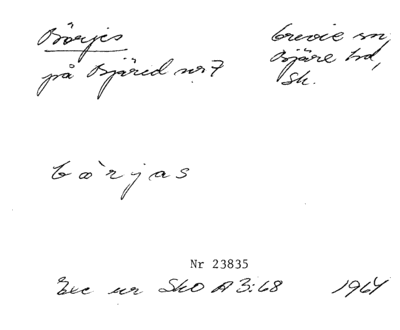 Börjes
på Bjäred nr 7
Grevie sn,
Bjäre hd,
Sk.
bö̀rjas
Nr 23835
Exc ur SkO A 3:68 1964